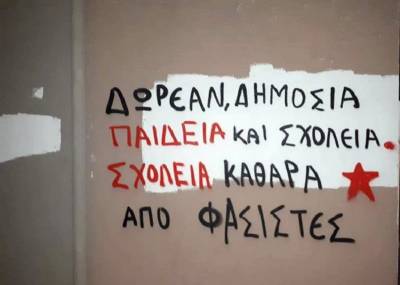 ΔΩΡΕΑΝ, ΔΗΜΟΣΙΑ
ΠΑΙΔΕΙΑ ΚΑΙ ΣΧΟΛΕΙΑ.
ΣΧΟΛΕΙΑ ΚΑΘΑΡΑ
ΑΠΟ ΦΑΣΙΣΤΕΣ